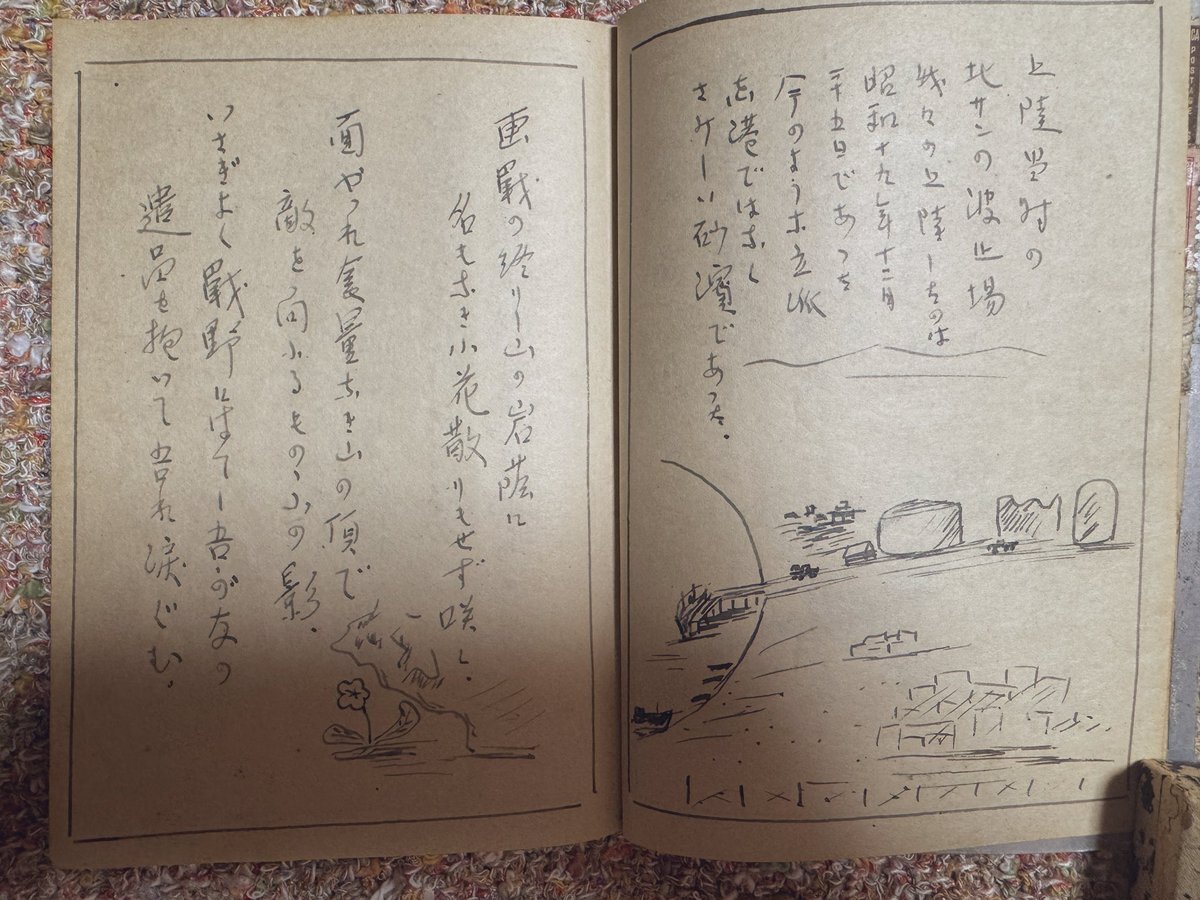 上陸當時の
北サンの波止場
我々の上陸したのは
昭和十九年十二月
二十五日であった
今のような立派
な港ではなく
さみしい砂濱であった。
画戰の終りし山の岩蔭に
名もなき小花散りもせず咲く。
面やつれ食量なき山の頂で
敵を向ふるものゝふの影.
いさぎよく戰野にはてし吾が友の
遺品を抱いて吾れ涙ぐむ。